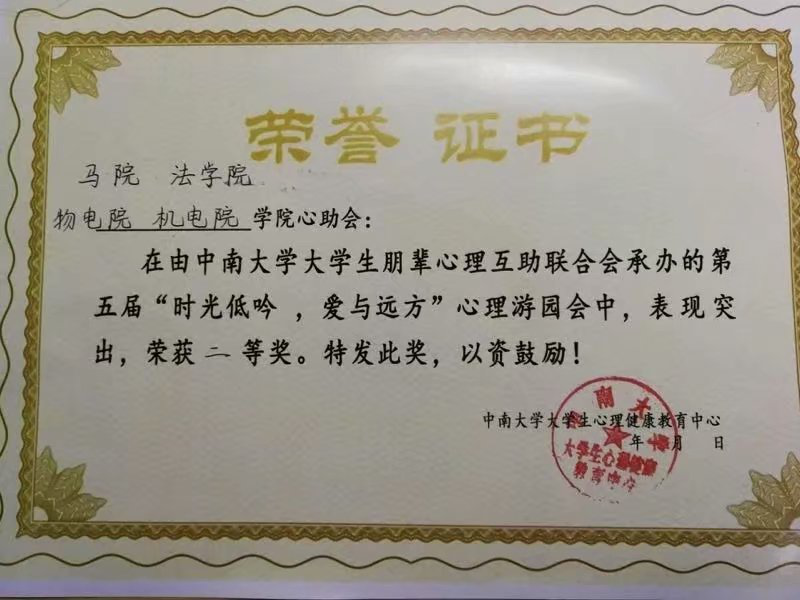 荣誉 证书
马院 法学院
物电院 机电院 学院心助会：
在由中南大学大学生朋辈心理互助联合会承办的第
五届“时光低吟 ，爱与远方”心理游园会中，表现突
出，荣获 二 等奖。特发此奖，以资鼓励！
中南大学大学生心理健康教育中心
年 月 日
中南大学
大学生心理健康
教育中心